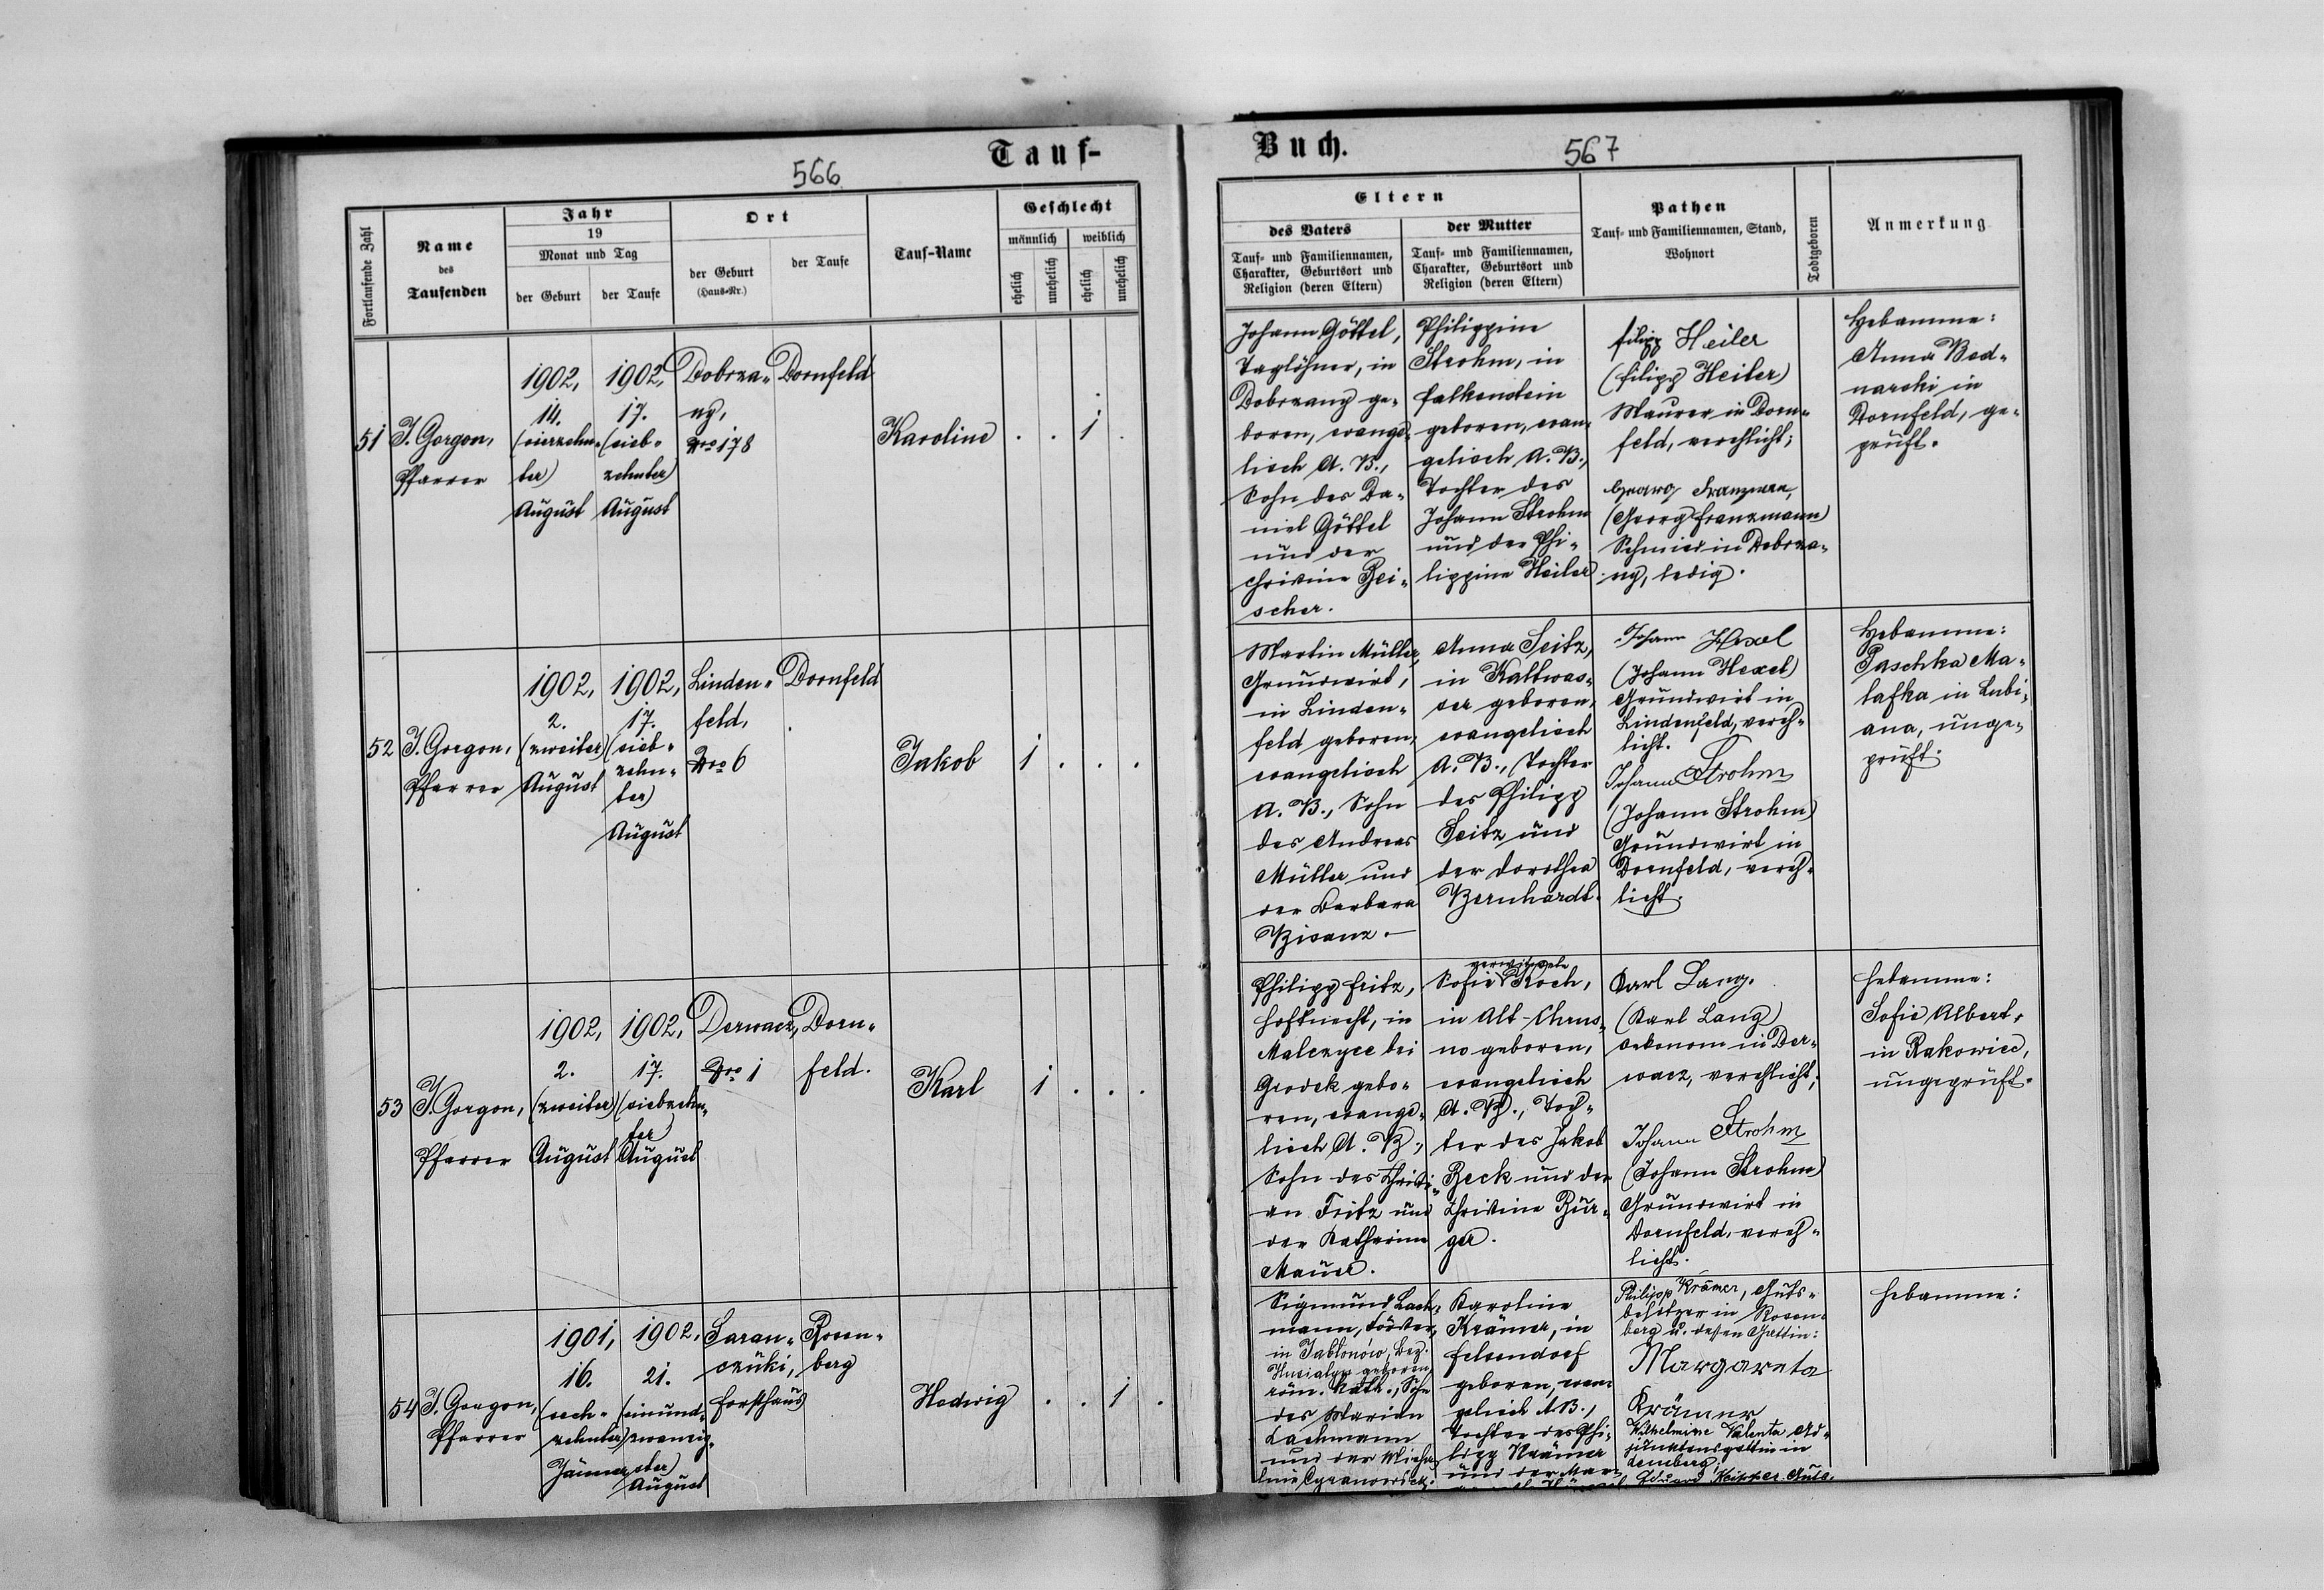 Tauf-
566
Fortlaufende Zahl
Name
des
Taufenden
Jahr
19
Monat und Tag
der Geburt
der Taufe
Ort
der Geburt
(Haus-Nr.)
der Taufe
Tauf-Name
Geschlecht
männlich
weiblich
ehelich
unehelich
ehelich
unehelich
51
J. Gorgon,
Pfarrer
1902,
14.
(vierzehn-
ter)
August
1902,
17.
(sieb-
zehnter)
August
Dobrza-
ny,
Nro 178
Dornfeld
Karoline
. . 1 .
52
J. Gorgon,
Pfarrer
1902,
2.
(zweiter)
August
1902,
17.
(sieb-
zehn-
ter)
August
Linden-
feld,
Nro 6
Dornfeld
Jakob
1 . . .
53
J. Gorgon,
Pfarrer
1902,
2.
(zweiter)
August
1902,
17.
(siebzehn-
ter)
August
Derwacz,
Nro 1
Dorn-
feld.
Karl
1 . . .
54
J. Gorgon,
Pfarrer
1901,
16.
(sech-
zehnter)
Jänner
1902,
21.
(einund-
zwanzig-
ster)
August
Saran-
czuki,
Forsthaus
Rosen-
berg
Hedwig
. . 1 .
Buch.
567
Eltern
des Vaters
Tauf- und Familiennamen,
Charakter, Geburtsort und
Religion (deren Eltern)
der Mutter
Tauf- und Familiennamen,
Charakter, Geburtsort und
Religion (deren Eltern)
Pathen
Tauf- und Familiennamen, Stand,
Wohnort
Todtgeboren
Anmerkung
Johann Göttel,
Taglöhner, in
Dobrzany ge-
boren, evange-
lisch A. B.,
Sohn des Da-
niel Göttel
und der
Christine Rei-
scher.
Philippine
Strohm, in
Falkenstein
geboren, evan-
gelisch A. B.,
Tochter des
Johann Strohm
und der Phi-
lippine Heiler
Filipp Heiler
(Filipp Heiler)
Maurer in Dorn-
feld, verehlicht;
Georg Franzman,
(Georg Franzmann)
Schmied in Dobrza-
ny, ledig.
Hebamme:
Anna Bed-
narski in
Dornfeld, ge-
prüft.
Martin Müller,
Grundwirt,
in Linden-
feld geboren,
evangelisch
A. B., Sohn
des Andreas
Müller und
der Barbara
Bisanz.
Anna Seitz,
in Kaltwas-
ser geboren,
evangelisch
A. B., Tochter
des Philipp
Seitz und
der Dorothea
Bernhardt.
Johann Hexel
(Johann Hexel)
Grundwirt in
Lindenfeld, vereh-
licht.
Johann Strohm
(Johann Strohm)
Grundwirt in
Dornfeld, vereh-
licht.
Hebamme:
Paschka Ma-
lafka in Lubi-
ana, unge-
prüft.
Philipp Fritz,
Hofknecht, in
Malczyce bei
Grodek gebo-
ren, evange-
lisch A. B.,
Sohn des Christi-
an Fritz und
der Katharina
Mauer.
verwitwete
Sofie Koch,
in Alt-Chrus-
no geboren,
evangelisch
A. B., Toch-
ter des Jakob
Beck und der
Christine Bur-
ger.
Karl Lang.
(Karl Lang)
Oekonom in Der-
wacz, verehlicht;
Johann Strohm
(Johann Strohm)
Grundwirt in
Dornfeld, vereh-
licht.
Hebamme:
Sofie Albert,
in Rakowiec,
ungeprüft.
Sigmund Lach-
mann, Förster,
in Jabłonów, Bez.
Husiatyn geboren,
röm. kath., Sohn
des Marian
Lachmann
und der
Karoline
Krämer, in
Felsendorf
geboren, evan-
gelisch A. B.,
Tochter des Phi-
lipp Krämer
und der Mar-
Philipp Krämer, Guts-
besitzer in Rosen-
berg u. dessen Gattin:
Margareta
Krämer
Wilhelmine Valenta Ad-
junktensgattin in
Lemberg;
Hebamme: